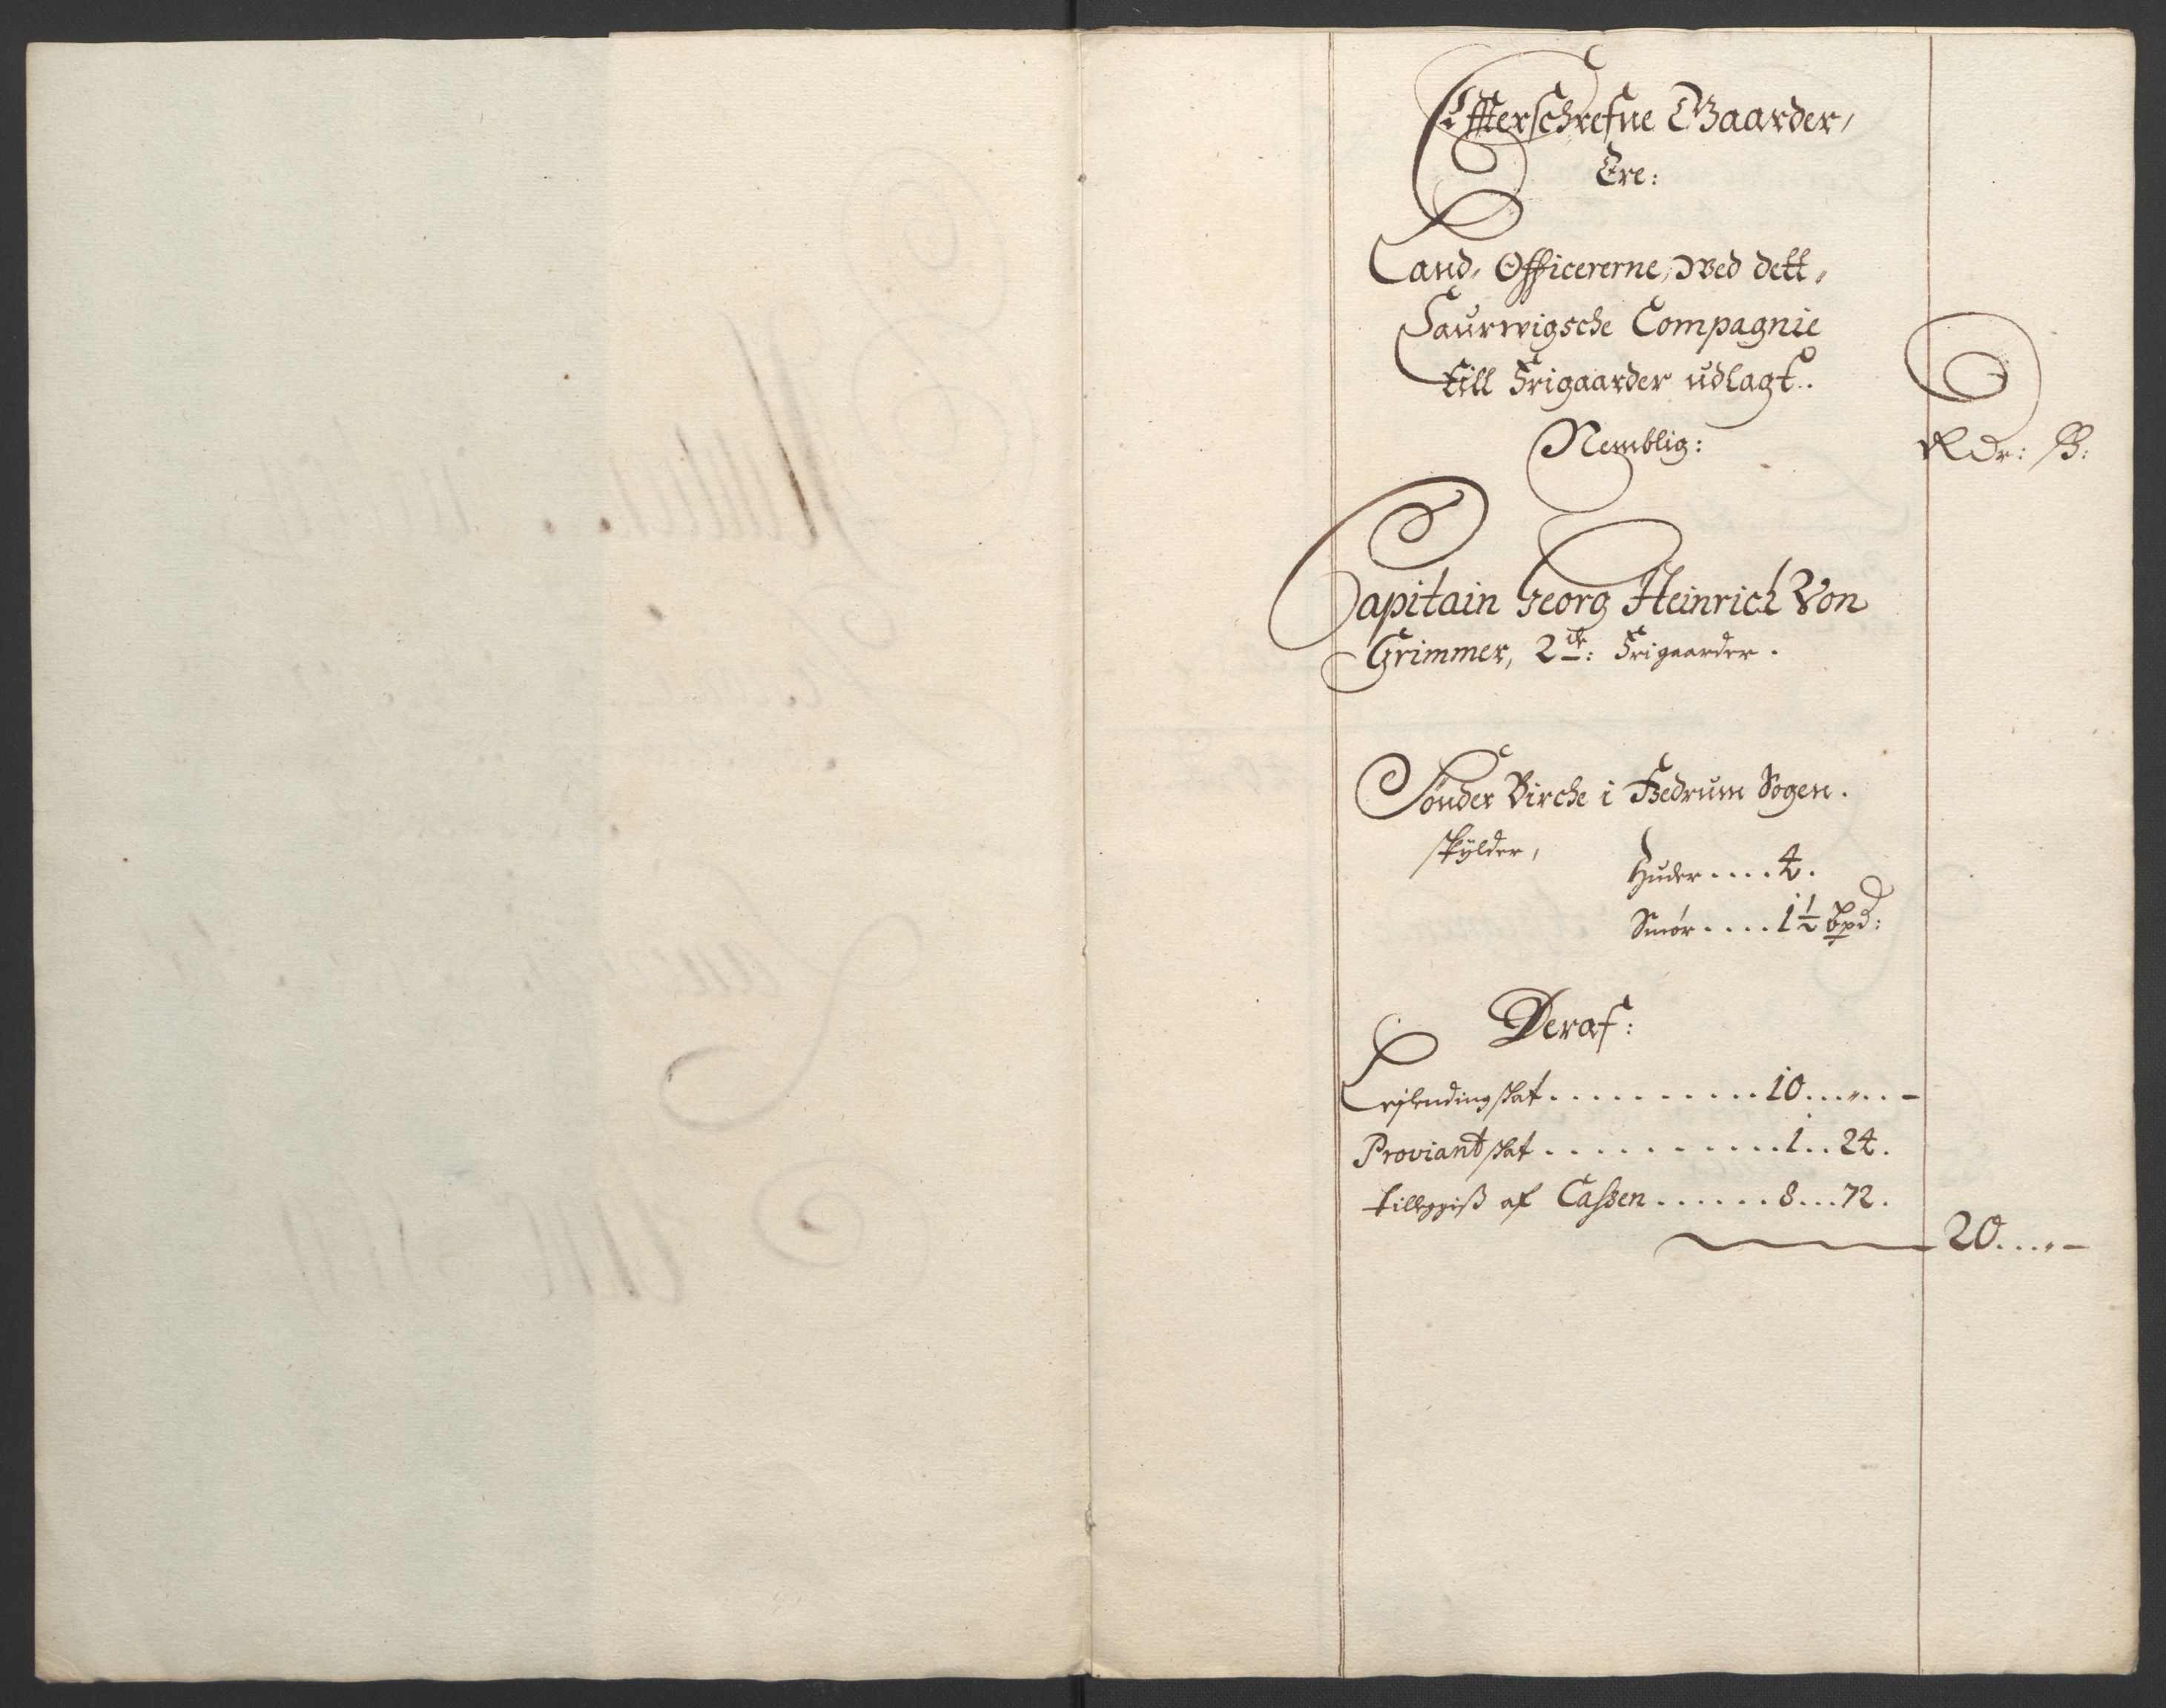 Efterschrefne Gaarder,
Ere:
Land, Officererne, wed dett,
Laurwigsche Compagnie
till Frigaarder udlagt..
Nemblig:
Rdr: ß:
Capitain Georg Heinrich Von
Grimmer, 2de: Frigaarder.
Sönder Birche i Hedrum Sogen.
skylder,
Huder....4.
Smör....1½ Bpd:
Deraf:
Lejlendingskat..........10...„..-
Proviantskat..........1..24.
tilleggiß af Caßen......8...72.
20...„-